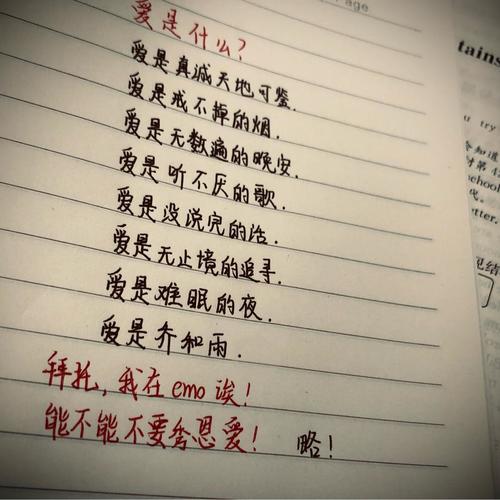 age
爱是什么?
爱是真诚天地可鉴.
爱是戒不掉的烟.
爱是无数遍的晚安.
爱是听不厌的歌.
爱是没说完的话.
爱是无止境的追寻.
爱是难眠的夜.
爱是乔和雨.
拜托,我在emo诶!
能不能不要秀恩爱! 略!
tains
u try